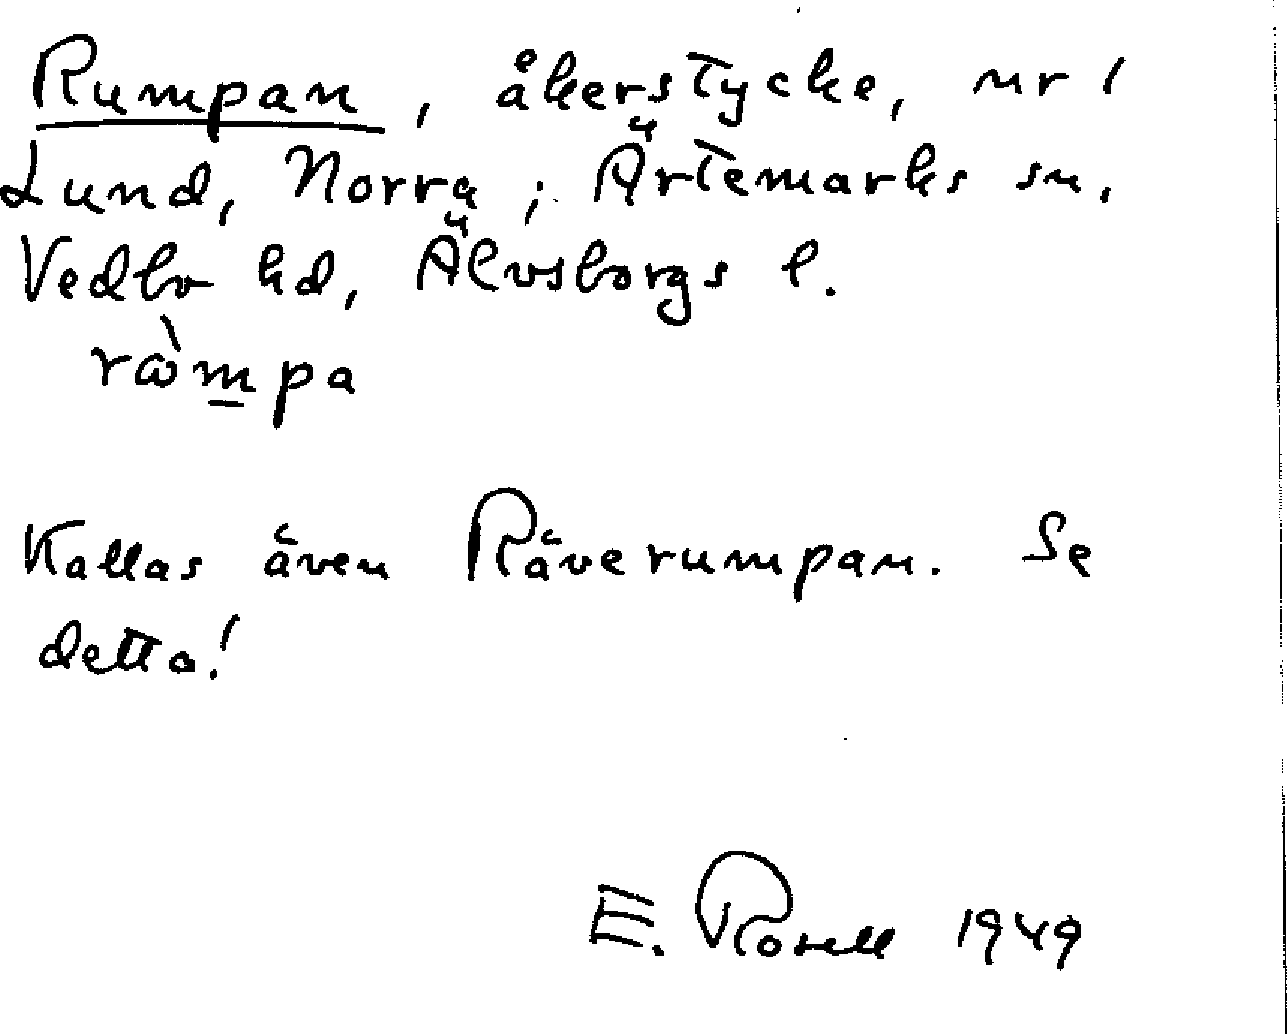 Rumpan, åkerstycke, nr 1
Lund, Norra; Ärtemarks sn.
Vedbo hd, Älvsborgs l.
rⱷ̀m̲pa
Kallas även Räverumpan. Se
detta!
E. Rosell 1949